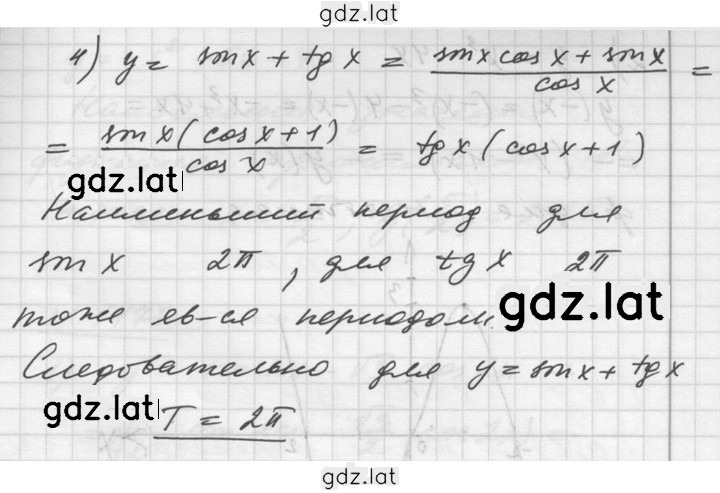 gdz.lat
4) y = sin x + tg x = \frac{sin x cos x + sin x}{cos x} =
= \frac{sin x (cos x + 1)}{cos x} = tg x (cos x + 1)
gdz.lat
Наименьший период для
sin x 2π, для tg x 2π
тоже яв-ся периодом.
gdz.lat
Следовательно для y = sin x + tg x
gdz.lat
T = 2π
gdz.lat